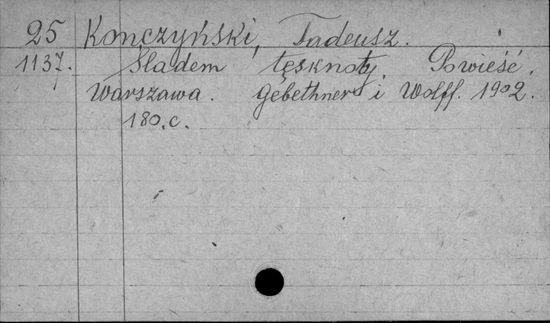 25 Konczyński, Tadeusz.
1137. Śladem tęsknoty. Powieść.
Warszawa. Gebethner i Wolff. 1902.
180.c.